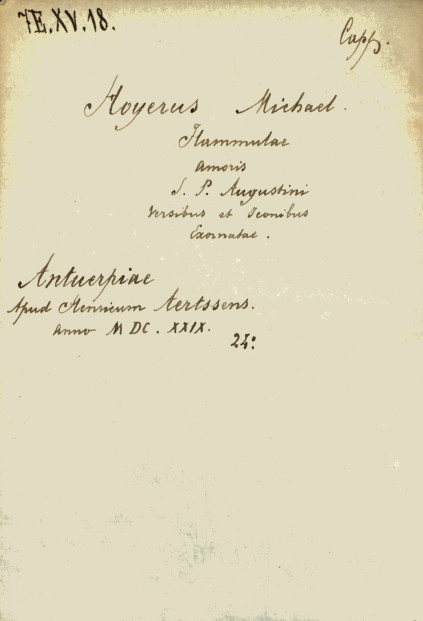 7E.XV.18.
Capp.
Hoyerus Michael.
Flammulae
Amoris
S. P. Augustini
Versibus et Iconibus
Exornatae.
Antuerpiae
Apud Henricum Aertssens.
Anno MDC. XXIX.
24: